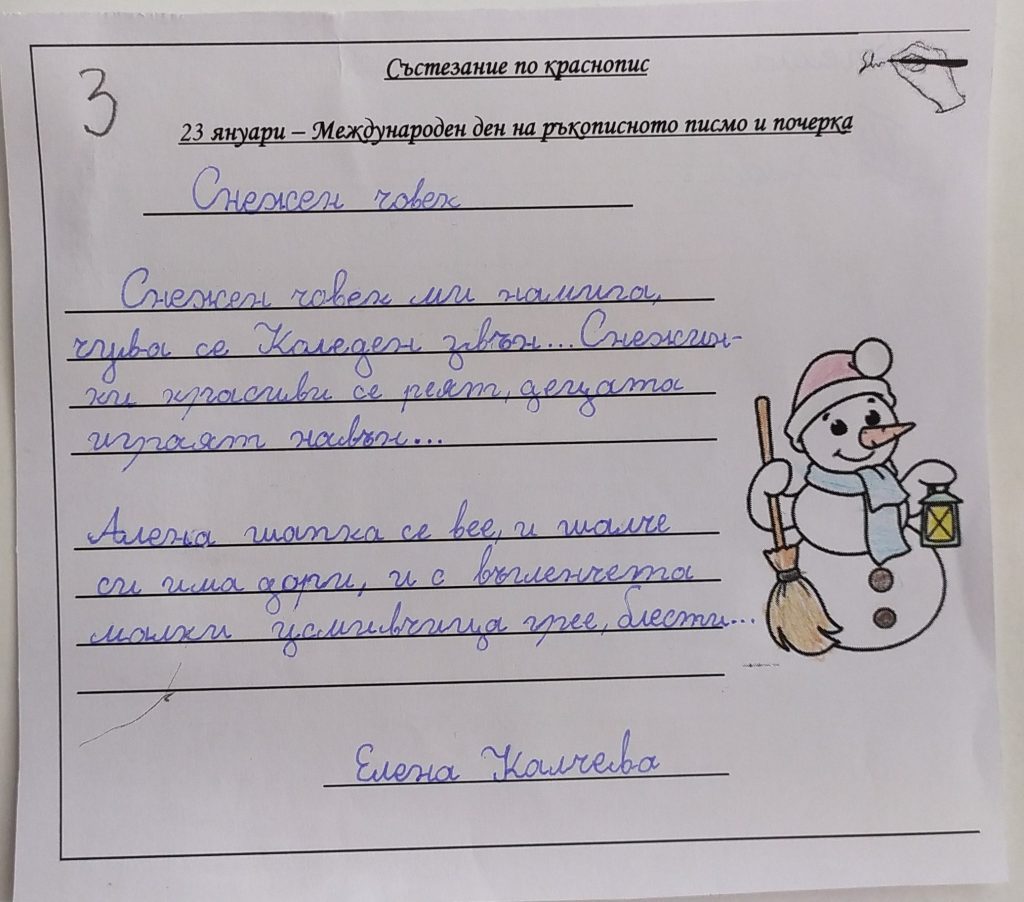 3
Състезание по краснопис
23 януари – Международен ден на ръкописното писмо и почерка
Снежен човек
Снежен човек ми намига,
чува се Коледен звън... Снежин-
ки красиви се реят, децата
играят навън...
Алена шапка се вее, и шалче
си има дори, и с въгленчета
малки усмивчица грее, блести...
Елена Калчева